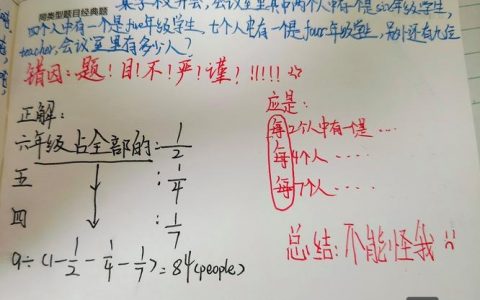 同类型题目经典题
某学校开会，会议室里其中两个人中有一个是six年级学生，
四个人中有一个是five年级学生，七个人中有一个是four年级学生，另外还有九位
teacher，会议室里有多少人？
错因：题！目！不！严！谨！！！！！！
正解：
六年级占全部的：1/2
五：1/4
四：1/7
9÷(1-1/2-1/4-1/7)=84(people)
应是：
每2个人中有一个是……
每4个人……
每7个人……
总结：不能怪我